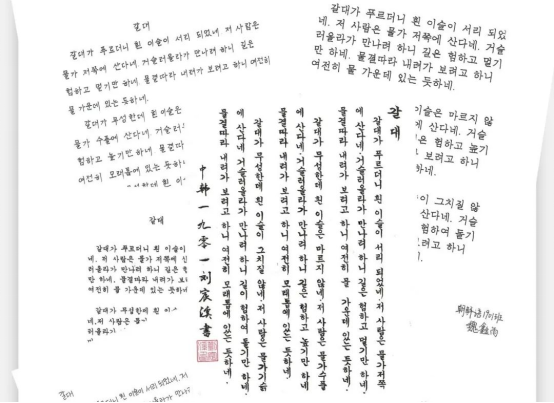 갈대
갈대가 푸르더니 흰 이슬이 서리 되었네 저 사람은
물가 저쪽에 산다네 거슬러올라가 만나려 하니 길은
험하고 멀기만 하네 물결따라 내려가 보려고 하니 여전히
물 가운데 있는 듯하네.
갈대가 무성한데 흰 이슬은
물가 수풀에 산다네 거슬러
험하고 높기만 하네 물결따
여전히 모래톱에 있는 듯하
갈대가 푸르더니 흰 이슬이 서리 되었
네. 저 사람은 물가 저쪽에 산다네. 거슬
러올라가 만나려 하니 길은 험하고 멀기
만 하네. 물결따라 내려가 보려고 하니
여전히 물 가운데 있는 듯하네.
이슬은 마르지 않
에 산다네. 거슬
은 험하고 높기
보려고 하니
하네.
이 그치질 않
산다네. 거슬
험하여 돌기
려고 하니
하네.
朝鲜语
갈대
갈대가 푸르더니 흰 이슬이 서리 되었네. 저 사람은 물가 저쪽
에 산다네. 거슬러올라가 만나려 하니 길은 험하고 멀기만 하네.
물결따라 내려가 보려고 하니 여전히 물 가운데 있는 듯하네.
갈대가 무성한데 흰 이슬은 마르지 않네. 저 사람은 물가 수풀
에 산다네. 거슬러올라가 만나려 하니 길은 험하고 높기만 하네
물결따라 내려가 보려고 하니 여전히 모래톱에 있는 듯하네.
갈대가 무성한데 흰 이슬이 그치질 않네. 저 사람은 물가 기슭
에 산다네. 거슬러올라가 만나려 하니 길이 험하여 돌기만 하네
물결따라 내려가 보려고 하니 여전히 모래톱에 있는 듯하네.
中韩一九零一刘宸溪書
갈대
갈대가 푸르더니 흰 이슬이
네. 저 사람은 물가 저쪽에 산
러올라가 만나려 하니 길은
만 하네. 물결따라 내려가 보
여전히 물 가운데 있는 듯하네
갈대가 무성한데 흰 이
네. 저 사람은 물가
갈대
갈대가 푸르더니 흰 이슬이 서리 되었네. 저